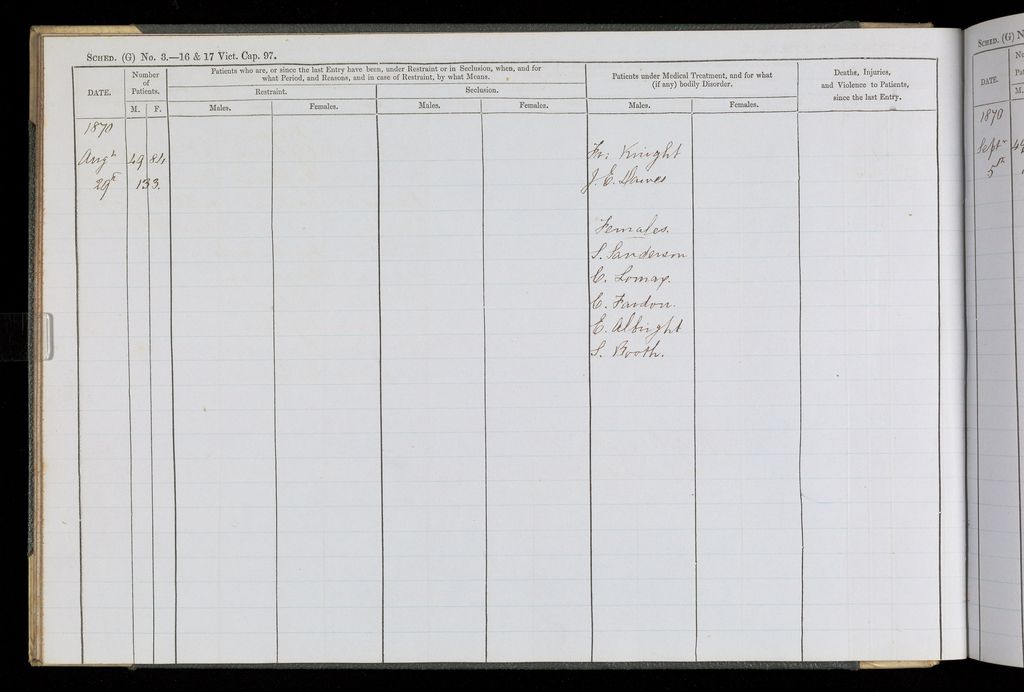 SCHED. (G) No. 3.—16 & 17 Vict. Cap. 97.
DATE.
Number of Patients.
M. F.
Patients who are, or since the last Entry have been, under Restraint or in Seclusion, when, and for
what Period, and Reasons, and in case of Restraint, by what Means.
Restraint.
Seclusion.
Males.
Females.
Males.
Females.
Patients under Medical Treatment, and for what
(if any) bodily Disorder.
Males.
Females.
Deaths, Injuries,
and Violence to Patients,
since the last Entry.
1870
Augt 49 84
29th 133.
Fr: Knight
J. E. Dawes
Females.
S. Sanderson
C. Lomax.
C. Fardon.
E. Albright
S. Booth.
SCHED. (G) N
DATE.
1870
Septr
5th